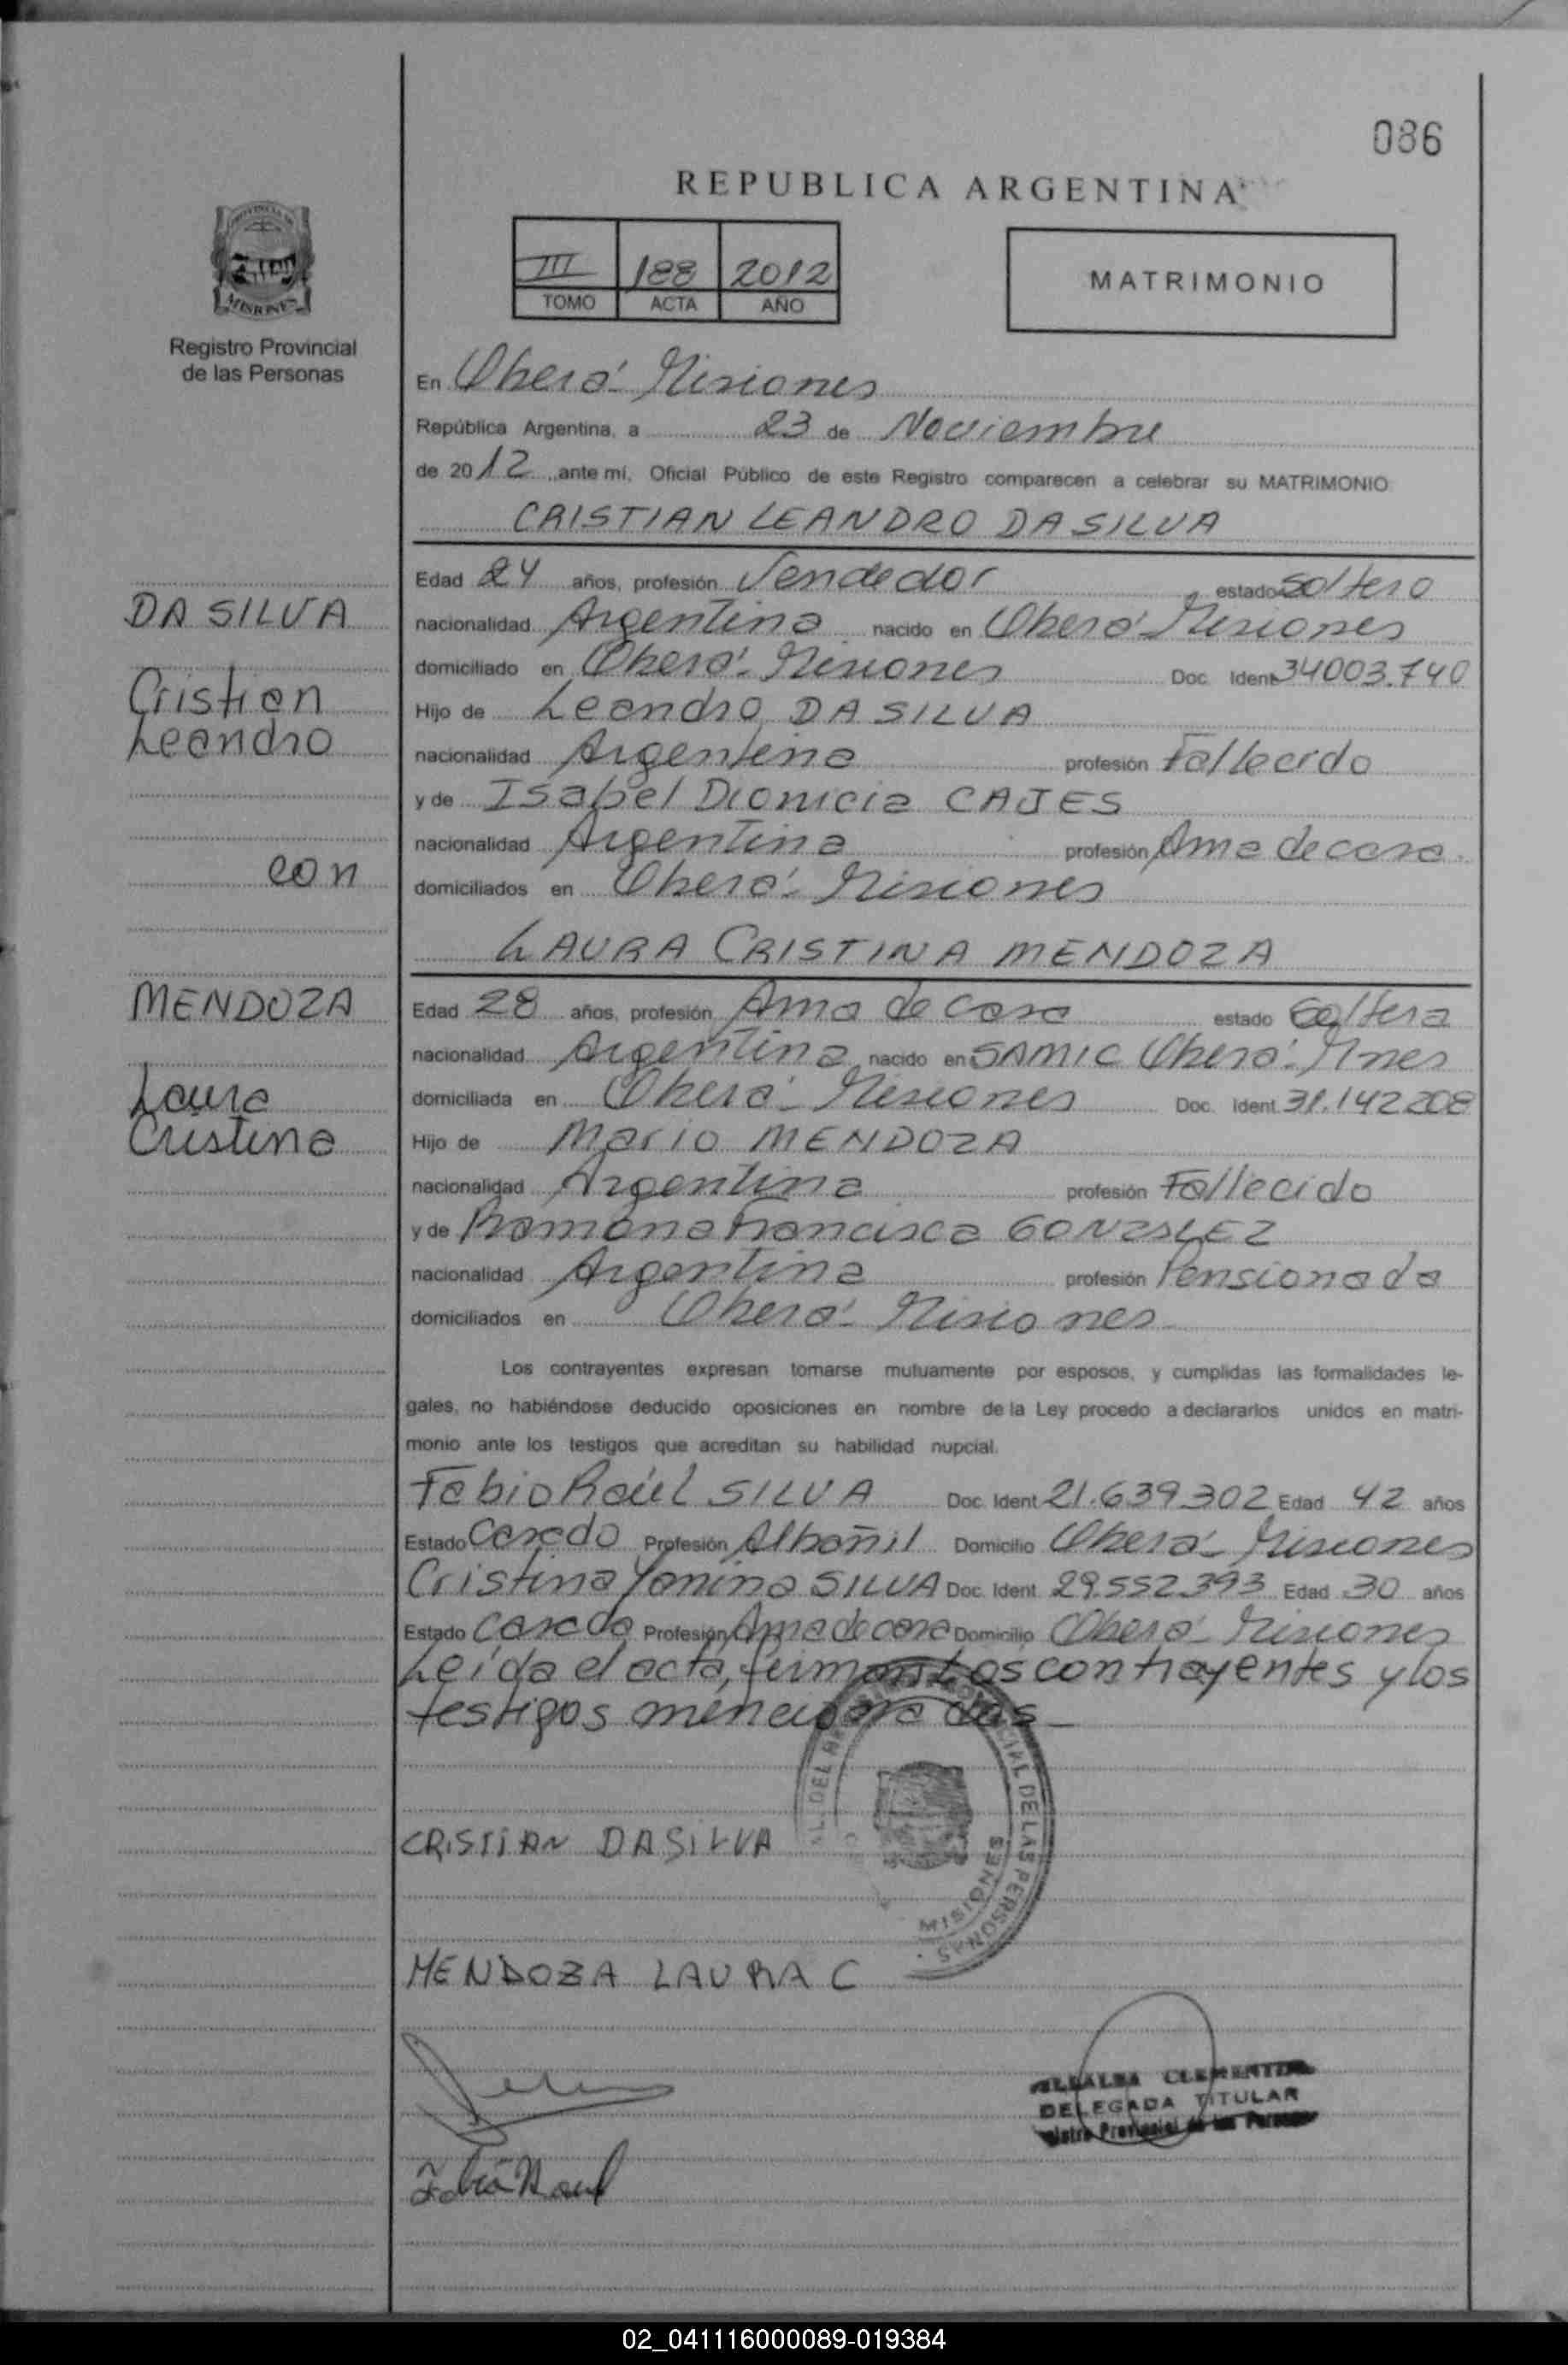 086
REPUBLICA ARGENTINA
III 188 2012
TOMO ACTA AÑO
MATRIMONIO
PROVINCIA DE
MISIONES
Registro Provincial
de las Personas
En Oberá - Misiones
República Argentina, a 23 de Noviembre
de 2012, ante mí, Oficial Público de este Registro comparecen a celebrar su MATRIMONIO
CRISTIAN LEANDRO DA SILVA
Edad 24 años, profesión Vendedor estado Soltero
nacionalidad Argentina nacido en Oberá - Misiones
domiciliado en Oberá - Misiones Doc. Ident. 34003.740
Hijo de Leandro DA SILVA
nacionalidad Argentina profesión Fallecido
y de Isabel Dionicia CAJES
nacionalidad Argentina profesión Ama de casa.
domiciliados en Oberá - Misiones
DA SILVA
Cristian
Leandro
con
MENDOZA
Laura
Cristina
LAURA CRISTINA MENDOZA
Edad 28 años, profesión Ama de casa estado Soltera
nacionalidad Argentina nacido en SAMIC Oberá - Mnes
domiciliada en Oberá - Misiones Doc. Ident. 31.142208
Hijo de Mario MENDOZA
nacionalidad Argentina profesión Fallecido
y de Ramona Francisca GONZALEZ
nacionalidad Argentina profesión Pensionada
domiciliados en Oberá - Misiones
Los contrayentes expresan tomarse mutuamente por esposos, y cumplidas las formalidades le-
gales, no habiéndose deducido oposiciones en nombre de la Ley procedo a declararlos unidos en matri-
monio ante los testigos que acreditan su habilidad nupcial.
Fabio Raúl SILVA Doc. Ident. 21.639.302 Edad 42 años
Estado Casado Profesión Albañil Domicilio Oberá - Misiones
Cristina Yanina SILVA Doc. Ident. 29.552.393 Edad 30 años
Estado Casada Profesión Ama de casa Domicilio Oberá - Misiones
Leída el acta, firman Los contrayentes y los
testigos mencionados -
CIAL DE LAS PERSONAS
MISIONES
CRISTIAN DASILVA
MENDOZA LAURA C
DELEGADA TITULAR
Provincial de las
Fabio Raul
02_041116000089-019384